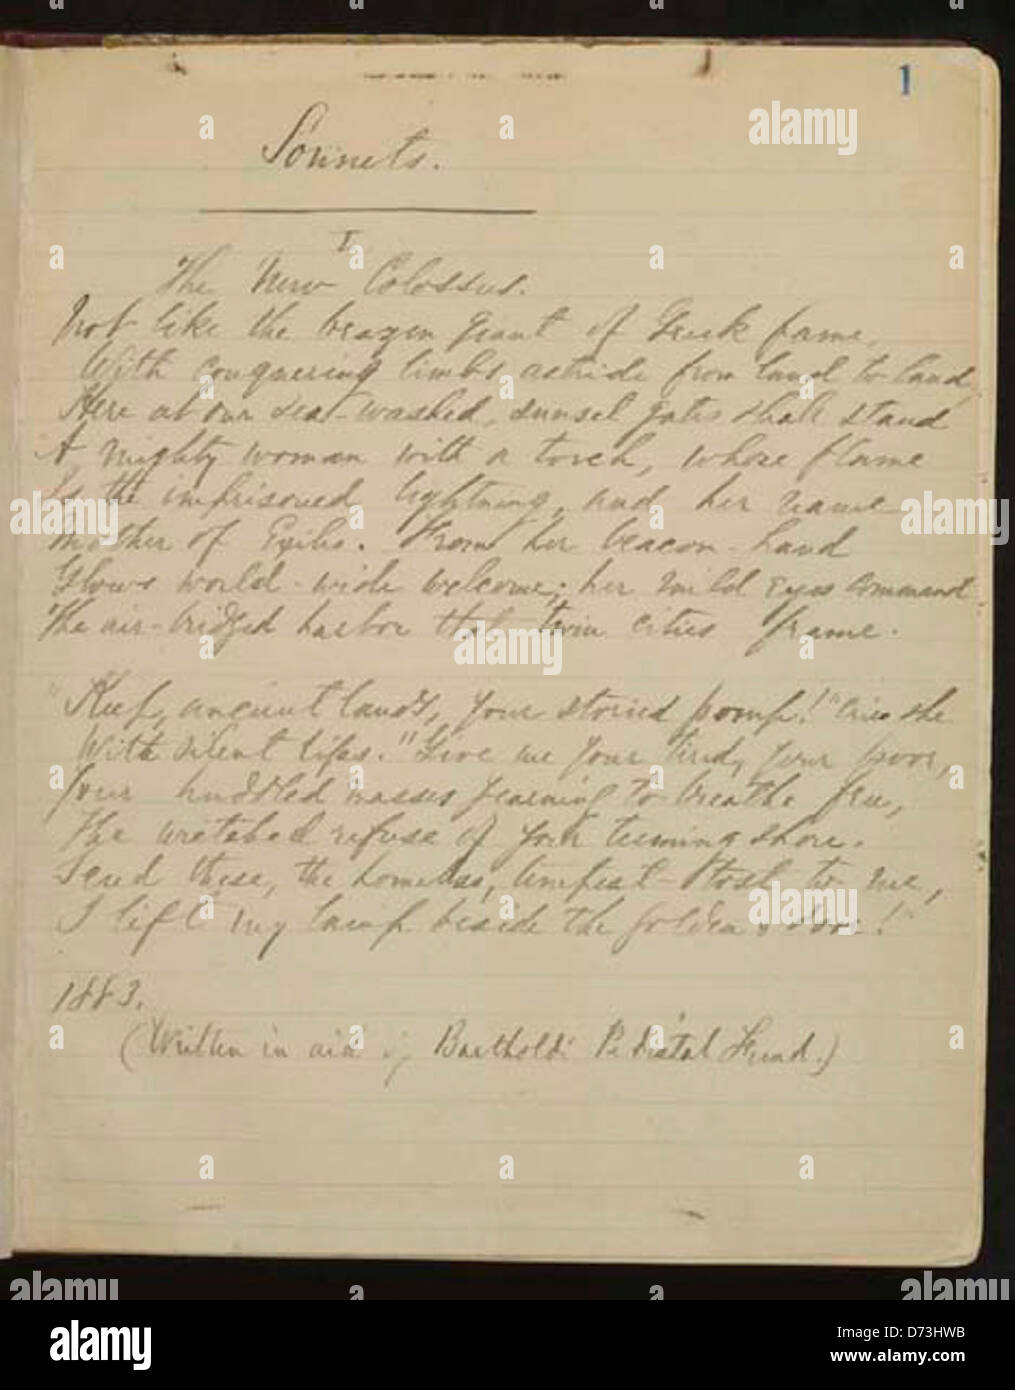 1
Sonnets.
I
The New Colossus.
Not like the brazen giant of Greek fame,
With conquering limbs astride from land to land,
Here at our sea-washed, sunset gates shall stand
A mighty woman with a torch, whose flame
Is the imprisoned lightning, and her name
Mother of Exiles. From her beacon-hand
Glows world-wide welcome; her mild eyes command
The air-bridged harbor that twin cities frame.
"Keep, ancient lands, your storied pomp!" cries she
With silent lips. "Give me your tired, your poor,
Your huddled masses yearning to breathe free,
The wretched refuse of your teeming shore.
Send these, the homeless, tempest-tost to me,
I lift my lamp beside the golden door!"
1883.
(Written in aid of Bartholdi Pedestal Fund.)
alamy
a
alamy
Image ID: D73HWB
www.alamy.com